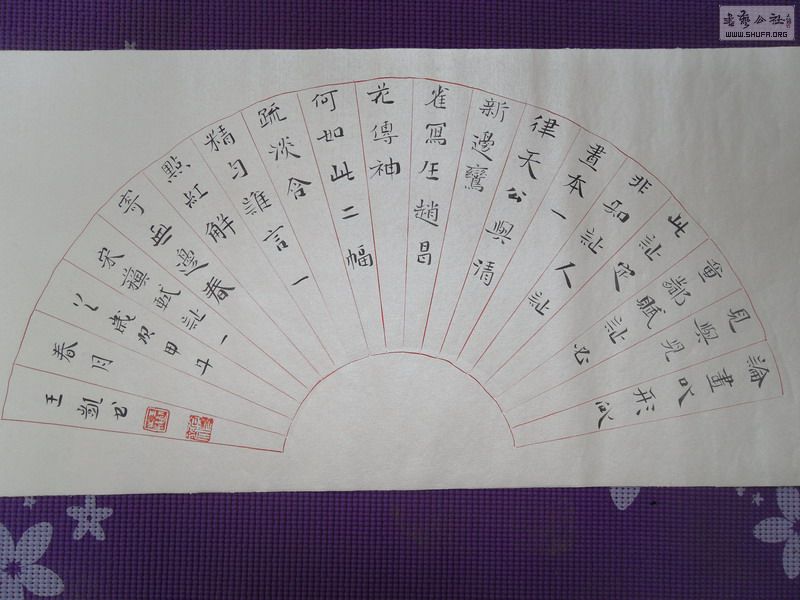 論畫以形似
見與兒
童鄰賦詩必
此詩定
非知詩人詩
畫本一
律天公與清
新邊鸞
雀寫生趙昌
花傳神
何如此二幅
疏淡含
精勻誰言一
點紅解
寄無邊春
宋蘇軾詩一
首歲次甲午
春月
王凱書
書藝公社
WWW.SHUFA.ORG